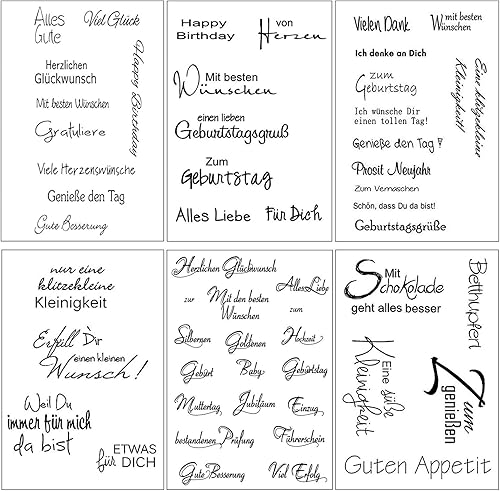 Alles
Gute
Viel Glück
Herzlichen
Glückwunsch
Happy Birthday
Mit besten Wünschen
Gratuliere
Viele Herzenswünsche
Genieße den Tag
Gute Besserung
Happy
Birthday
von
Herzen
Mit besten
Wünschen
einen lieben
Geburtstagsgruß
Zum
Geburtstag
Alles Liebe
Für Dich
Vielen Dank
mit besten
Wünschen
Ich denke an Dich
zum
Geburtstag
Eine klitzekleine
Kleinigkeit!
Ich wünsche Dir
einen tollen Tag!
Genieße den Tag!
Prosit Neujahr
Zum Vernaschen
Schön, dass Du da bist!
Geburtstagsgrüße
nur eine
klitzekleine
Kleinigkeit
Erfüll Dir
einen kleinen
Wunsch!
Weil Du
immer für mich
da bist
ETWAS
für DICH
Herzlichen Glückwunsch
zur
Mit den besten
Wünschen
Alles Liebe
zum
Silbernen
Goldenen
Hochzeit
Geburt
Baby
Geburtstag
Muttertag
Jubiläum
Einzug
bestandenen Prüfung
Führerschein
Gute Besserung
Viel Erfolg
Mit
Schokolade
geht alles besser
Betthupferl
Eine süße
Kleinigkeit
Zum
genießen
Guten Appetit